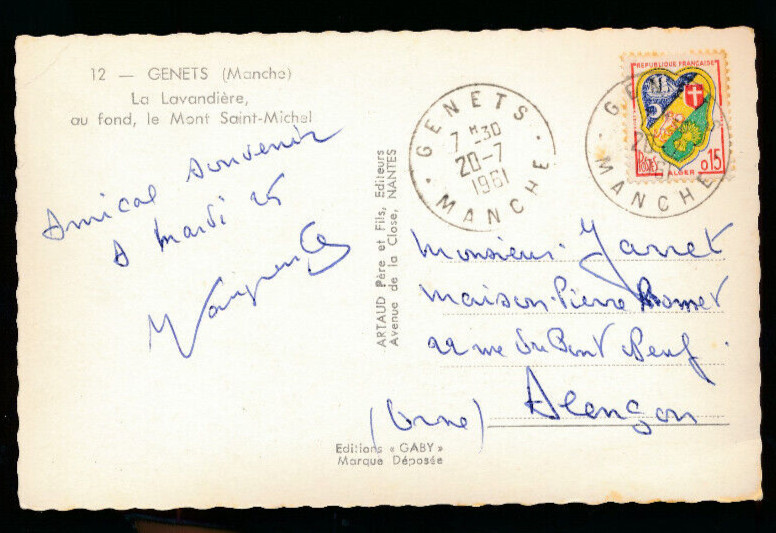 12 — GENETS (Manche)
La Lavandière,
au fond, le Mont Saint-Michel
Amical souvenir
A mardi 25
ARTAUD Père et Fils, Editeurs
Avenue de la Close, NANTES
GENETS
7 H 30
20-7
1961
MANCHE
REPUBLIQUE FRANÇAISE
POSTES
ALGER
0,15
GENETS
MANCHE
Monsieur Jarret
maison Pierre
22 rue du Pont Neuf.
Alençon
(Orne)
Editions « GABY »
Marque Déposée